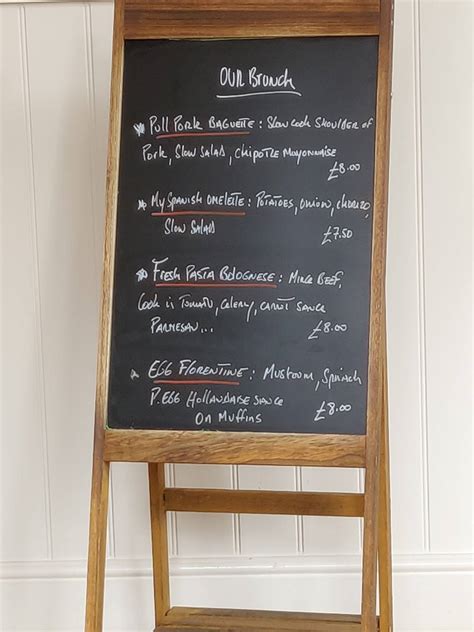 OUR Brunch
* Pull Pork BAGUETTE : Slow Cook SHOULDER of
Pork, Slow SALAD, CHIPOTLE MAYONNAISE
£8.00
* My SPANISH OMELETTE : POTATOES, ONION, CHORIZO,
Slow SALAD £7.50
* FRESH PASTA BOLOGNESE : MINCE BEEF,
Cook is TOMATO, Celery, CARROT SAUCE
PARMESAN... £8.00
* EGG FLORENTINE : MUSHROOM, SPINACH
P.EGG HOLLANDAISE SAUCE £8.00
On Muffins